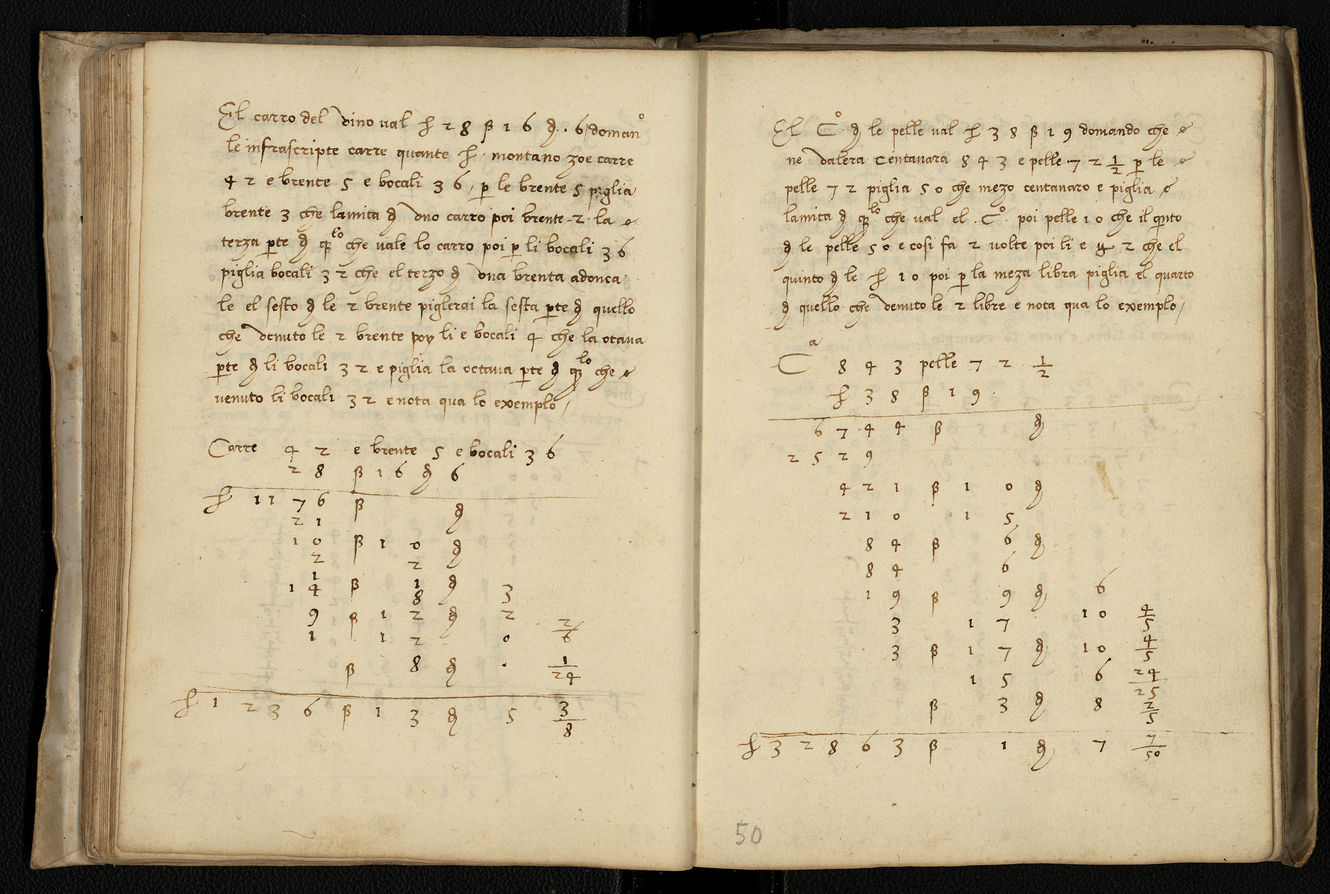 El carro del vino val ₶ 28 ß 16 ꝺ · 6 / domanº
le infrascripte carre quante ₶ · montano zoe carre
42 e brente 5 e bocali 36 / ꝑ le brente 5 piglia
brente 3 che lamita ꝺ uno carro poi brente 2 · la
terza ꝑte ꝺ qˡᵒ che vale lo carro poi ꝑ li bocali 36
piglia bocali 32 che el terzo ꝺ una brenta adonca
le el sesto ꝺ le 2 brente piglerai la sesta ꝑte ꝺ quello
che venuto le 2 brente poy li e bocali 4 che la otava
ꝑte ꝺ li bocali 32 e piglia la octava ꝑte ꝺ qˡᵒ che
venuto li bocali 32 e nota qua lo exemplo /
Carre 42 e brente 5 e bocali 36
28 ß 16 ꝺ 6
₶ 1176 ß ꝺ
21
10 ß 10 ꝺ
2 2
1
14 ß 18 ꝺ 3
9 ß 12 ꝺ 2
1 12 0 2/6
ß 8 ꝺ · 1/24
₶ 1236 ß 13 ꝺ 5 3/8
El Cº · ꝺ le pelle val ₶ 38 ß 19 domando che
ne valera centanara 843 e pelle 72 1/2 ꝑ le
pelle 72 piglia 50 che mezo centanaro e piglia
lamita ꝺ qˡᵒ che val el · Cº · poi pelle 10 che il qnto
ꝺ le pelle 50 e cosi fa 2 volte poi li e 2 che el
quinto ꝺ le ₶ 10 poi ꝑ la meza libra piglia el quarto
ꝺ quello che venuto le 2 libre e nota qua lo exemplo /
Cᵃ 843 pelle 72 · 1/2
₶ 38 ß 19 ·
6744 ß ꝺ
2529
421 ß 10 ꝺ
210 15
84 ß 6 ꝺ
84 6
19 ß 9 ꝺ 6
3 17 10 4/5
3 ß 17 ꝺ 10 4/5
15 6 24/25
ß 3 ꝺ 8 2/5
₶ 32863 ß 1 ꝺ 7 7/50
50